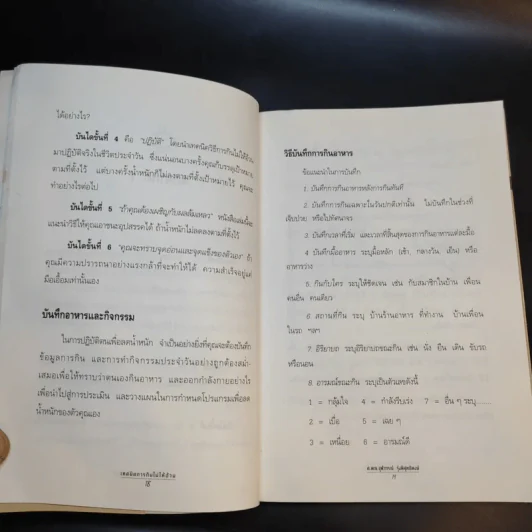 ได้อย่างไร?
บันไดขั้นที่ 4 คือ "ปฏิบัติ" โดยนำเทคนิควิธีการกินไม่ให้อ้วน
มาปฏิบัติจริงในชีวิตประจำวัน ซึ่งแน่นอนบางครั้งคุณก็บรรลุเป้าหมาย
ตามที่ตั้งไว้ แต่บางครั้งน้ำหนักก็ไม่ลงตามที่ตั้งเป้าหมายไว้ คุณจะ
ทำอย่างไรต่อไป
บันไดขั้นที่ 5 "ถ้าคุณต้องเผชิญกับผลล้มเหลว" หนังสือเล่มนี้จะ
แนะนำวิธีให้คุณเอาชนะอุปสรรคได้ ถ้าน้ำหนักไม่ลดลงตามที่ตั้งไว้
บันไดขั้นที่ 6 "คุณจะทราบจุดอ่อนและจุดแข็งของตัวเอง" ถ้า
คุณมีความปรารถนาอย่างแรงกล้าที่จะทำให้ได้ ความสำเร็จอยู่แค่
มือเอื้อมเท่านั้นเอง
บันทึกอาหารและกิจกรรม
ในการปฏิบัติตนเพื่อลดน้ำหนัก จำเป็นอย่างยิ่งที่คุณจะต้องบันทึก
ข้อมูลการกิน และการทำกิจกรรมประจำวันอย่างถูกต้องสม่ำ-
เสมอเพื่อให้ทราบว่าตนเองกินอาหาร และออกกำลังกายอย่างไร
เพื่อนำไปสู่การประเมิน และวางแผนในการกำหนดโปรแกรมเพื่อลด
น้ำหนักของตัวคุณเอง
เทคนิคการกินไม่ให้อ้วน
18
วิธีบันทึกการกินอาหาร
ข้อแนะนำในการบันทึก
1. บันทึกการกินอาหารหลังการกินทันที
2. บันทึกการกินเฉพาะในวันปกติเท่านั้น ไม่บันทึกในช่วงที่
เจ็บป่วย หรือไปทัศนาจร
3. บันทึกเวลาที่เริ่ม และเวลาที่สิ้นสุดของการกินอาหารแต่ละมื้อ
4. บันทึกมื้ออาหาร ระบุมื้อหลัก (เช้า, กลางวัน, เย็น) หรือ
อาหารว่าง
5. กินกับใคร ระบุให้ชัดเจน เช่น กับสมาชิกในบ้าน เพื่อน
คนอื่น คนเดียว
6. สถานที่กิน ระบุ บ้านร้านอาหาร ที่ทำงาน บ้านเพื่อน
ในรถ ฯลฯ
7. อิริยาบถ ระบุอิริยาบถขณะกิน เช่น นั่ง ยืน เดิน ขับรถ
หรือนอน
8. อารมณ์ขณะกิน ระบุเป็นตัวเลขดังนี้
1 = กลุ้มใจ 4 = กำลังรีบเร่ง 7 = อื่น ๆ ระบุ......
2 = เบื่อ 5 = เฉย ๆ
3 = เหนื่อย 6 = อารมณ์ดี